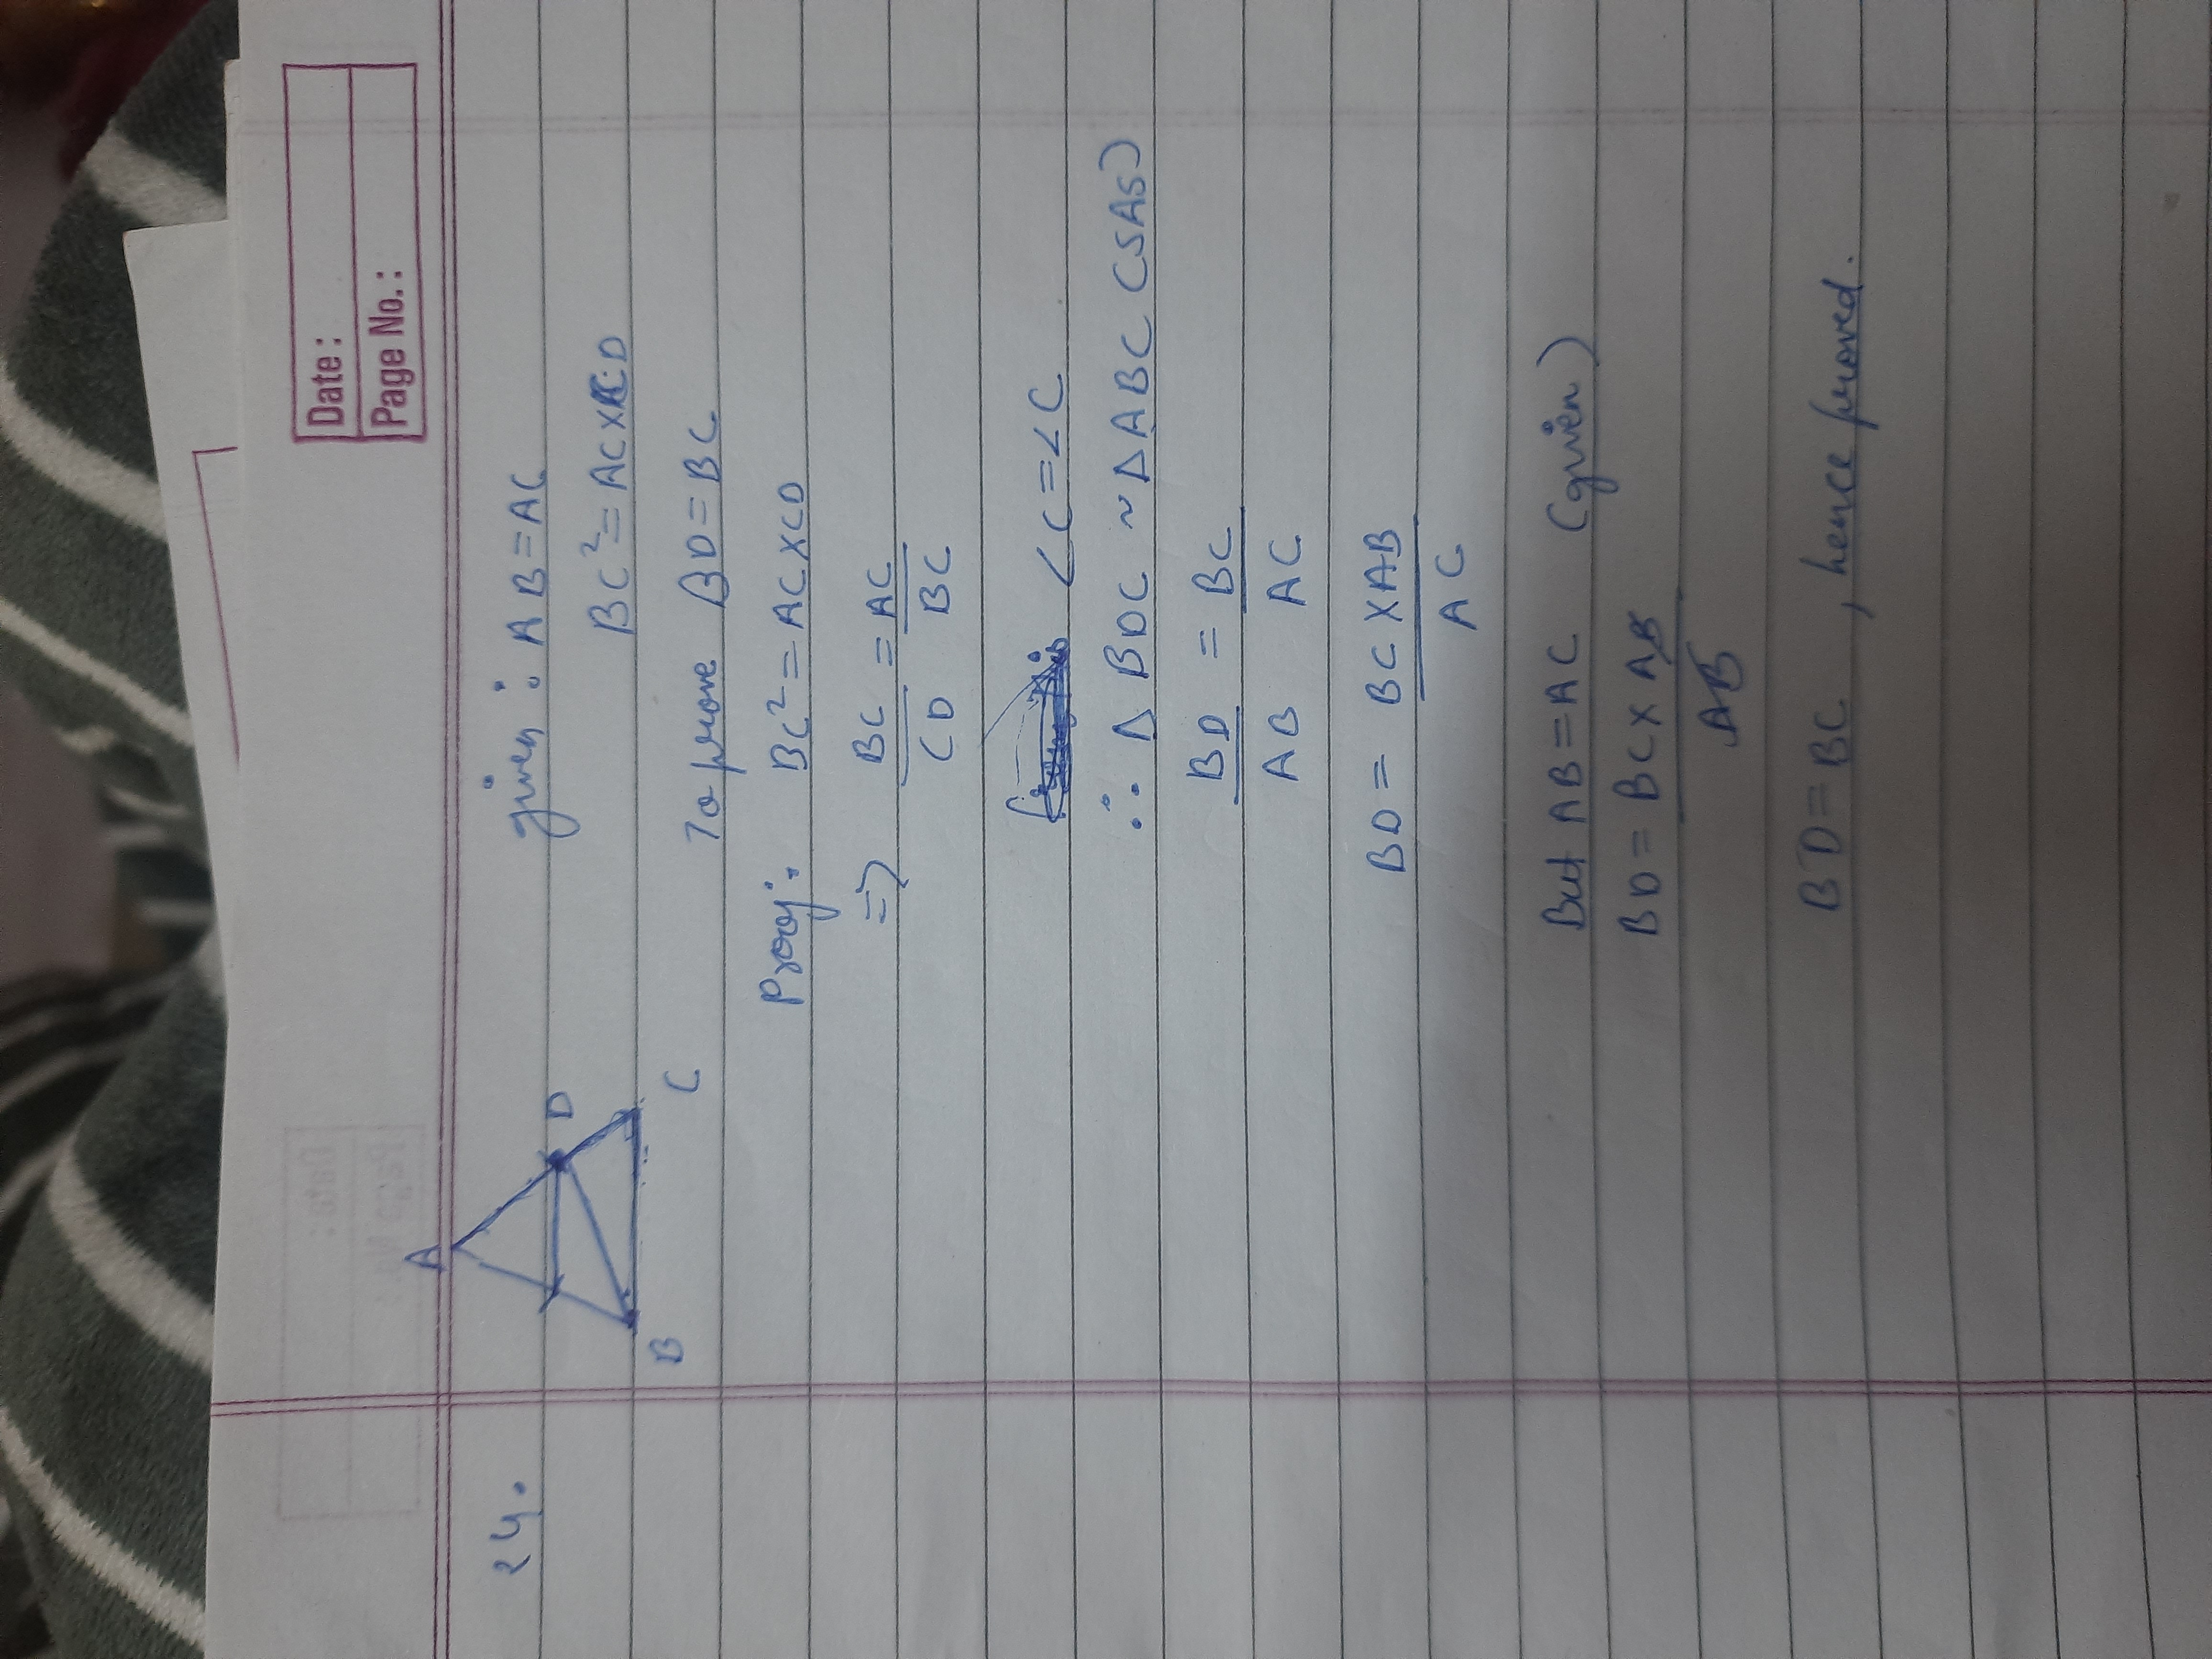 Date :
Page No. :
24.
A
D
B
C
given : AB = AC
BC² = AC × CD
To prove BD = BC
Proof: BC² = AC × CD
=> BC/CD = AC/BC
∠C = ∠C
∴ Δ BDC ~ Δ ABC (SAS)
BD/AB = BC/AC
BD = BC × AB/AC
But AB = AC (given)
BD = BC × AB/AB
BD = BC , hence proved.